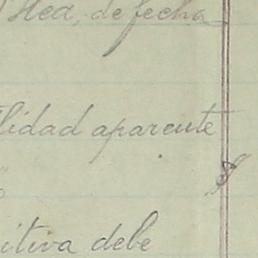 de fecha
lidad aparente
itiva debe